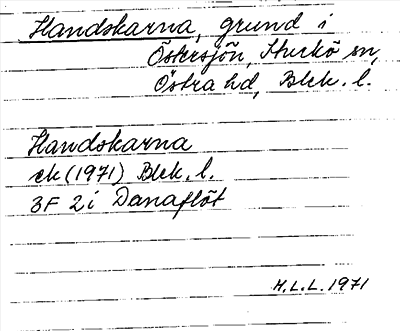 Handskarna, grund i
Östersjön, Sturkö sn,
Östra hd, Blek. l.
Handskarna
ek (1971) Blek. l.
3F 2i Danaflöt
H.L.L. 1971